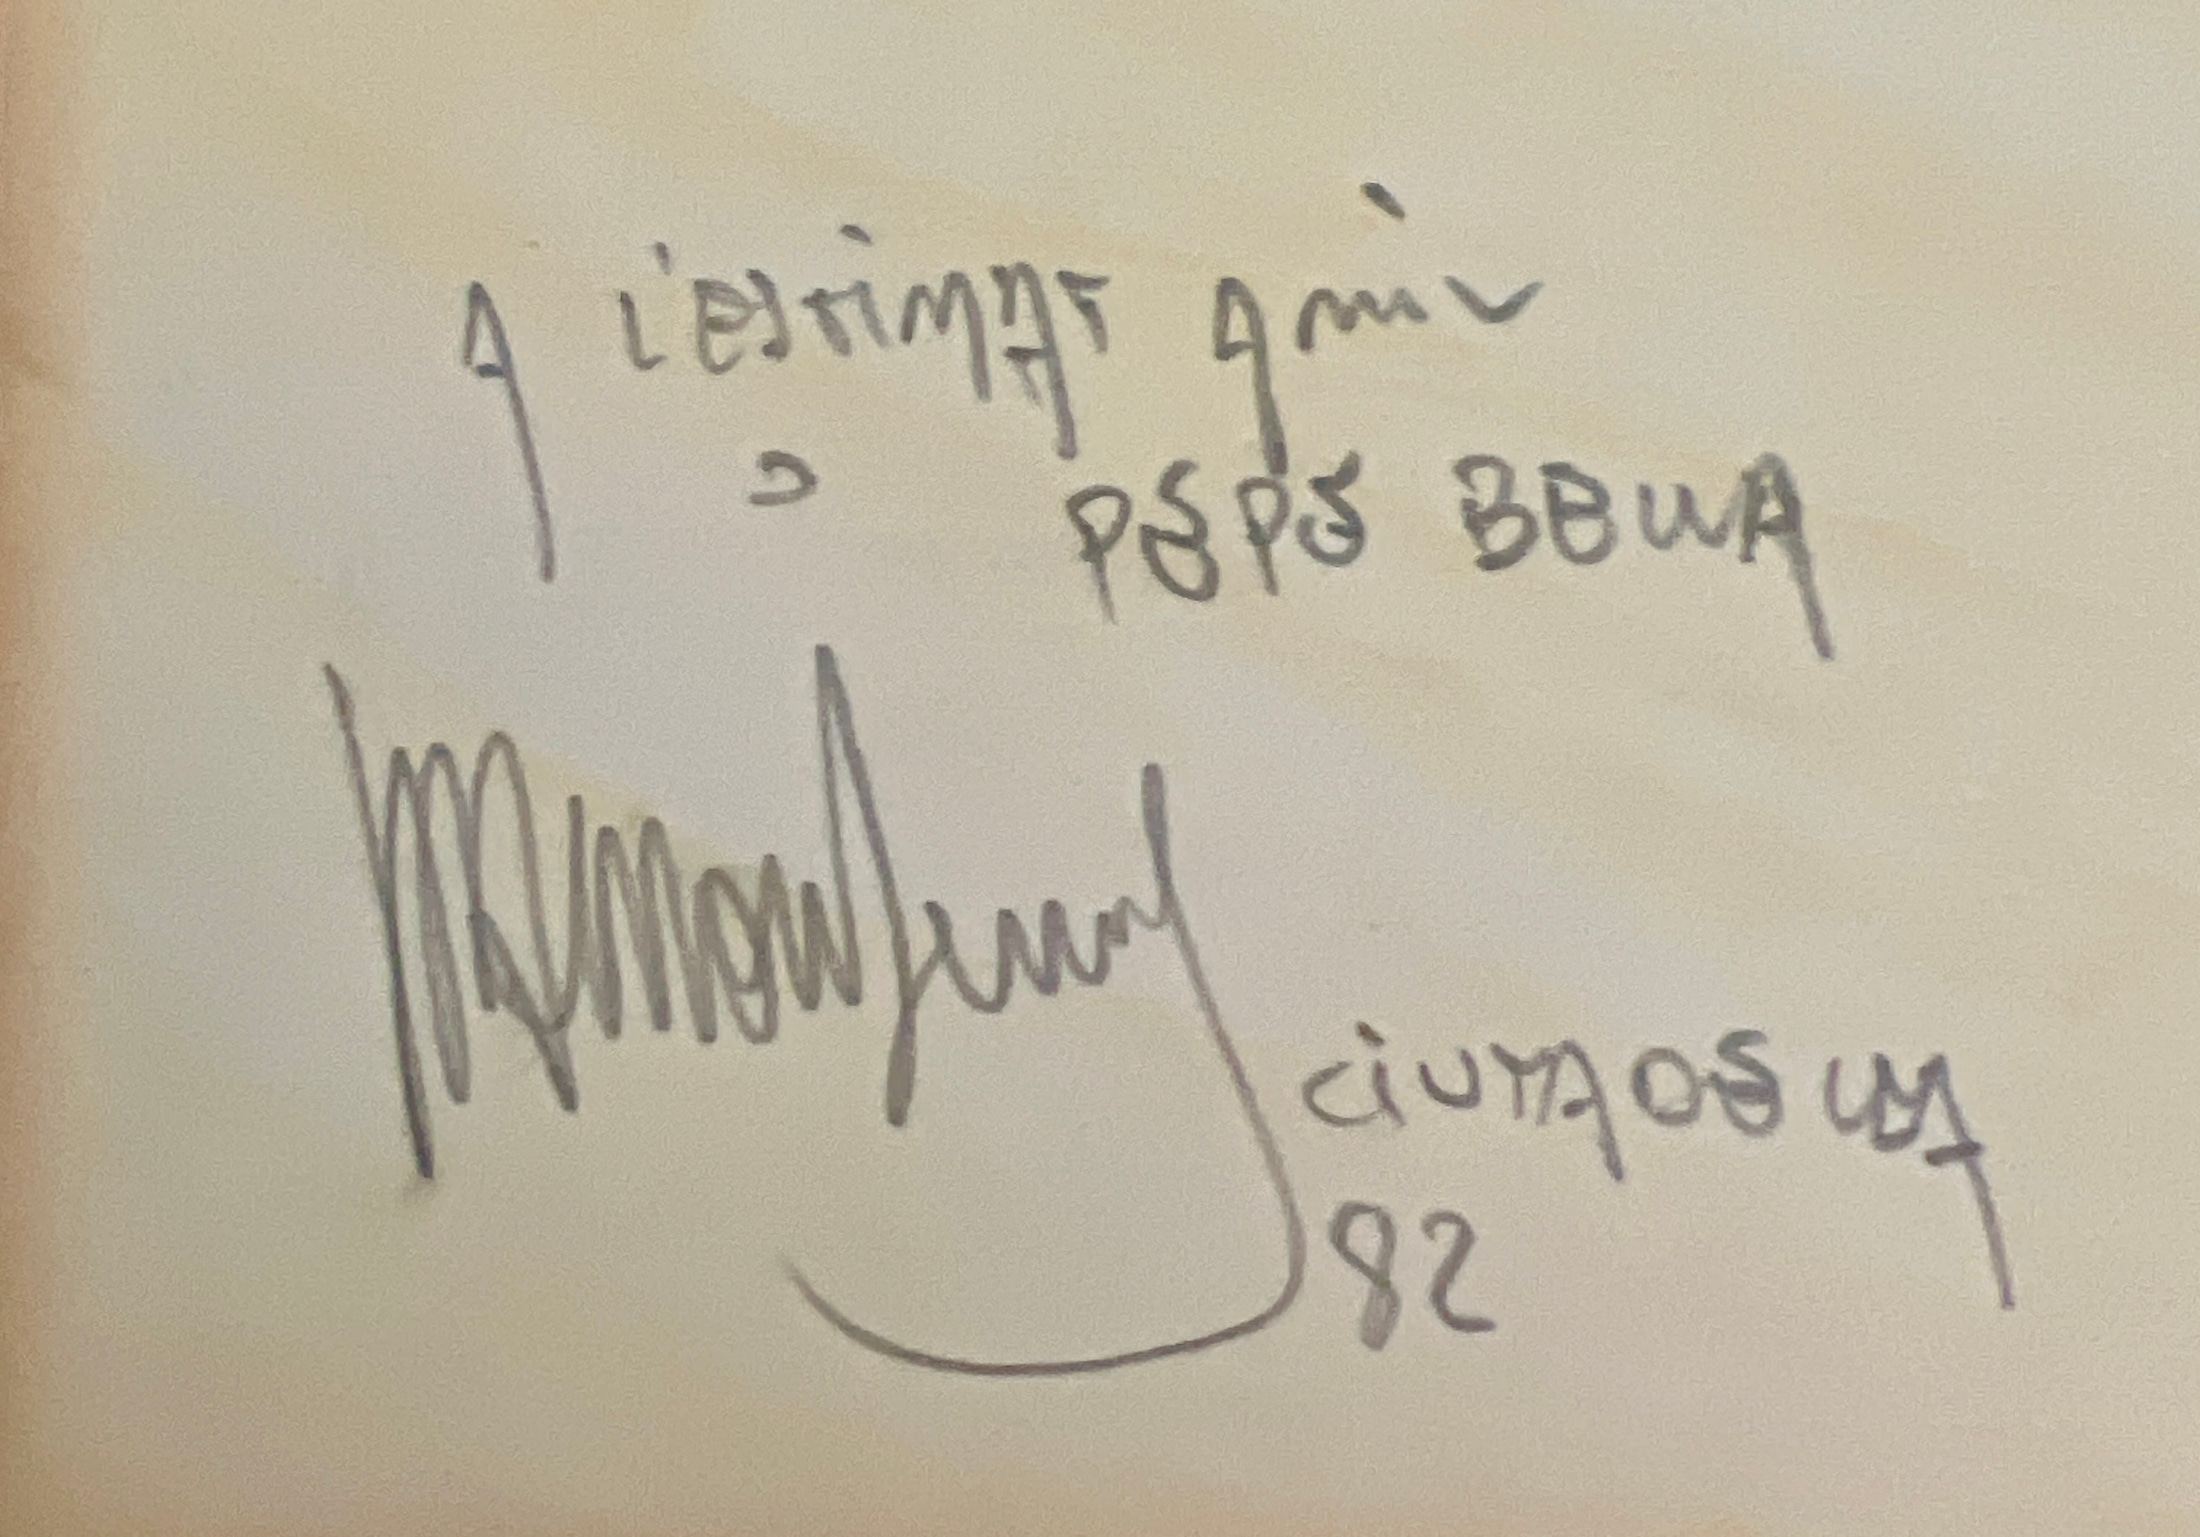 A L'ESTIMAT AMIC
PEPE BELLA
CIUTADELLA
82